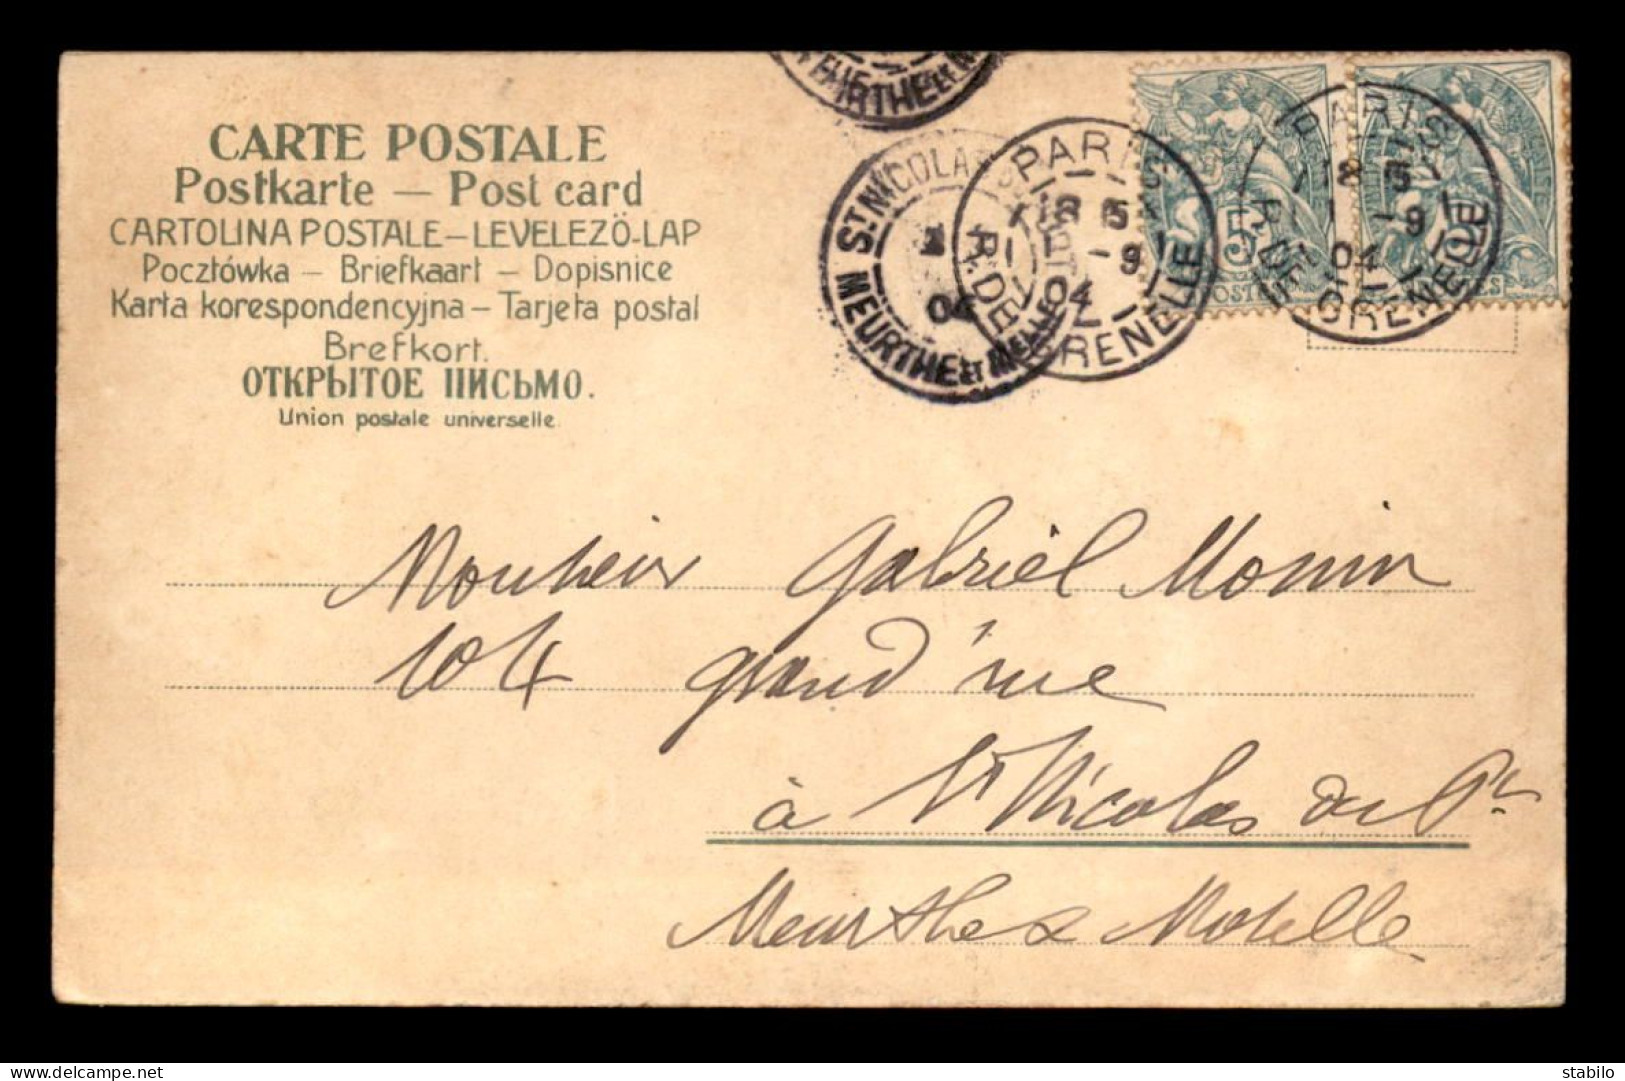 CARTE POSTALE
Postkarte — Post card
CARTOLINA POSTALE – LEVELEZÖ-LAP
Pocztówka – Briefkaart – Dopisnice
Karta korespondencyjna – Tarjeta postal
Brefkort.
ОТКРЫТОЕ ПИСЬМО.
Union postale universelle.
MEURTHE ET M
ST NICOLAS
04
MEURTHE ET MOSELLE
PARIS
18 5
1 -9
04
R. DE GRENELLE
5
POSTES
PARIS
18 5
1 -9
04
R. DE GRENELLE
Monsieur Gabriel Monin
104 grand'rue
à St Nicolas du Pt
Meurthe & Moselle
stabilo